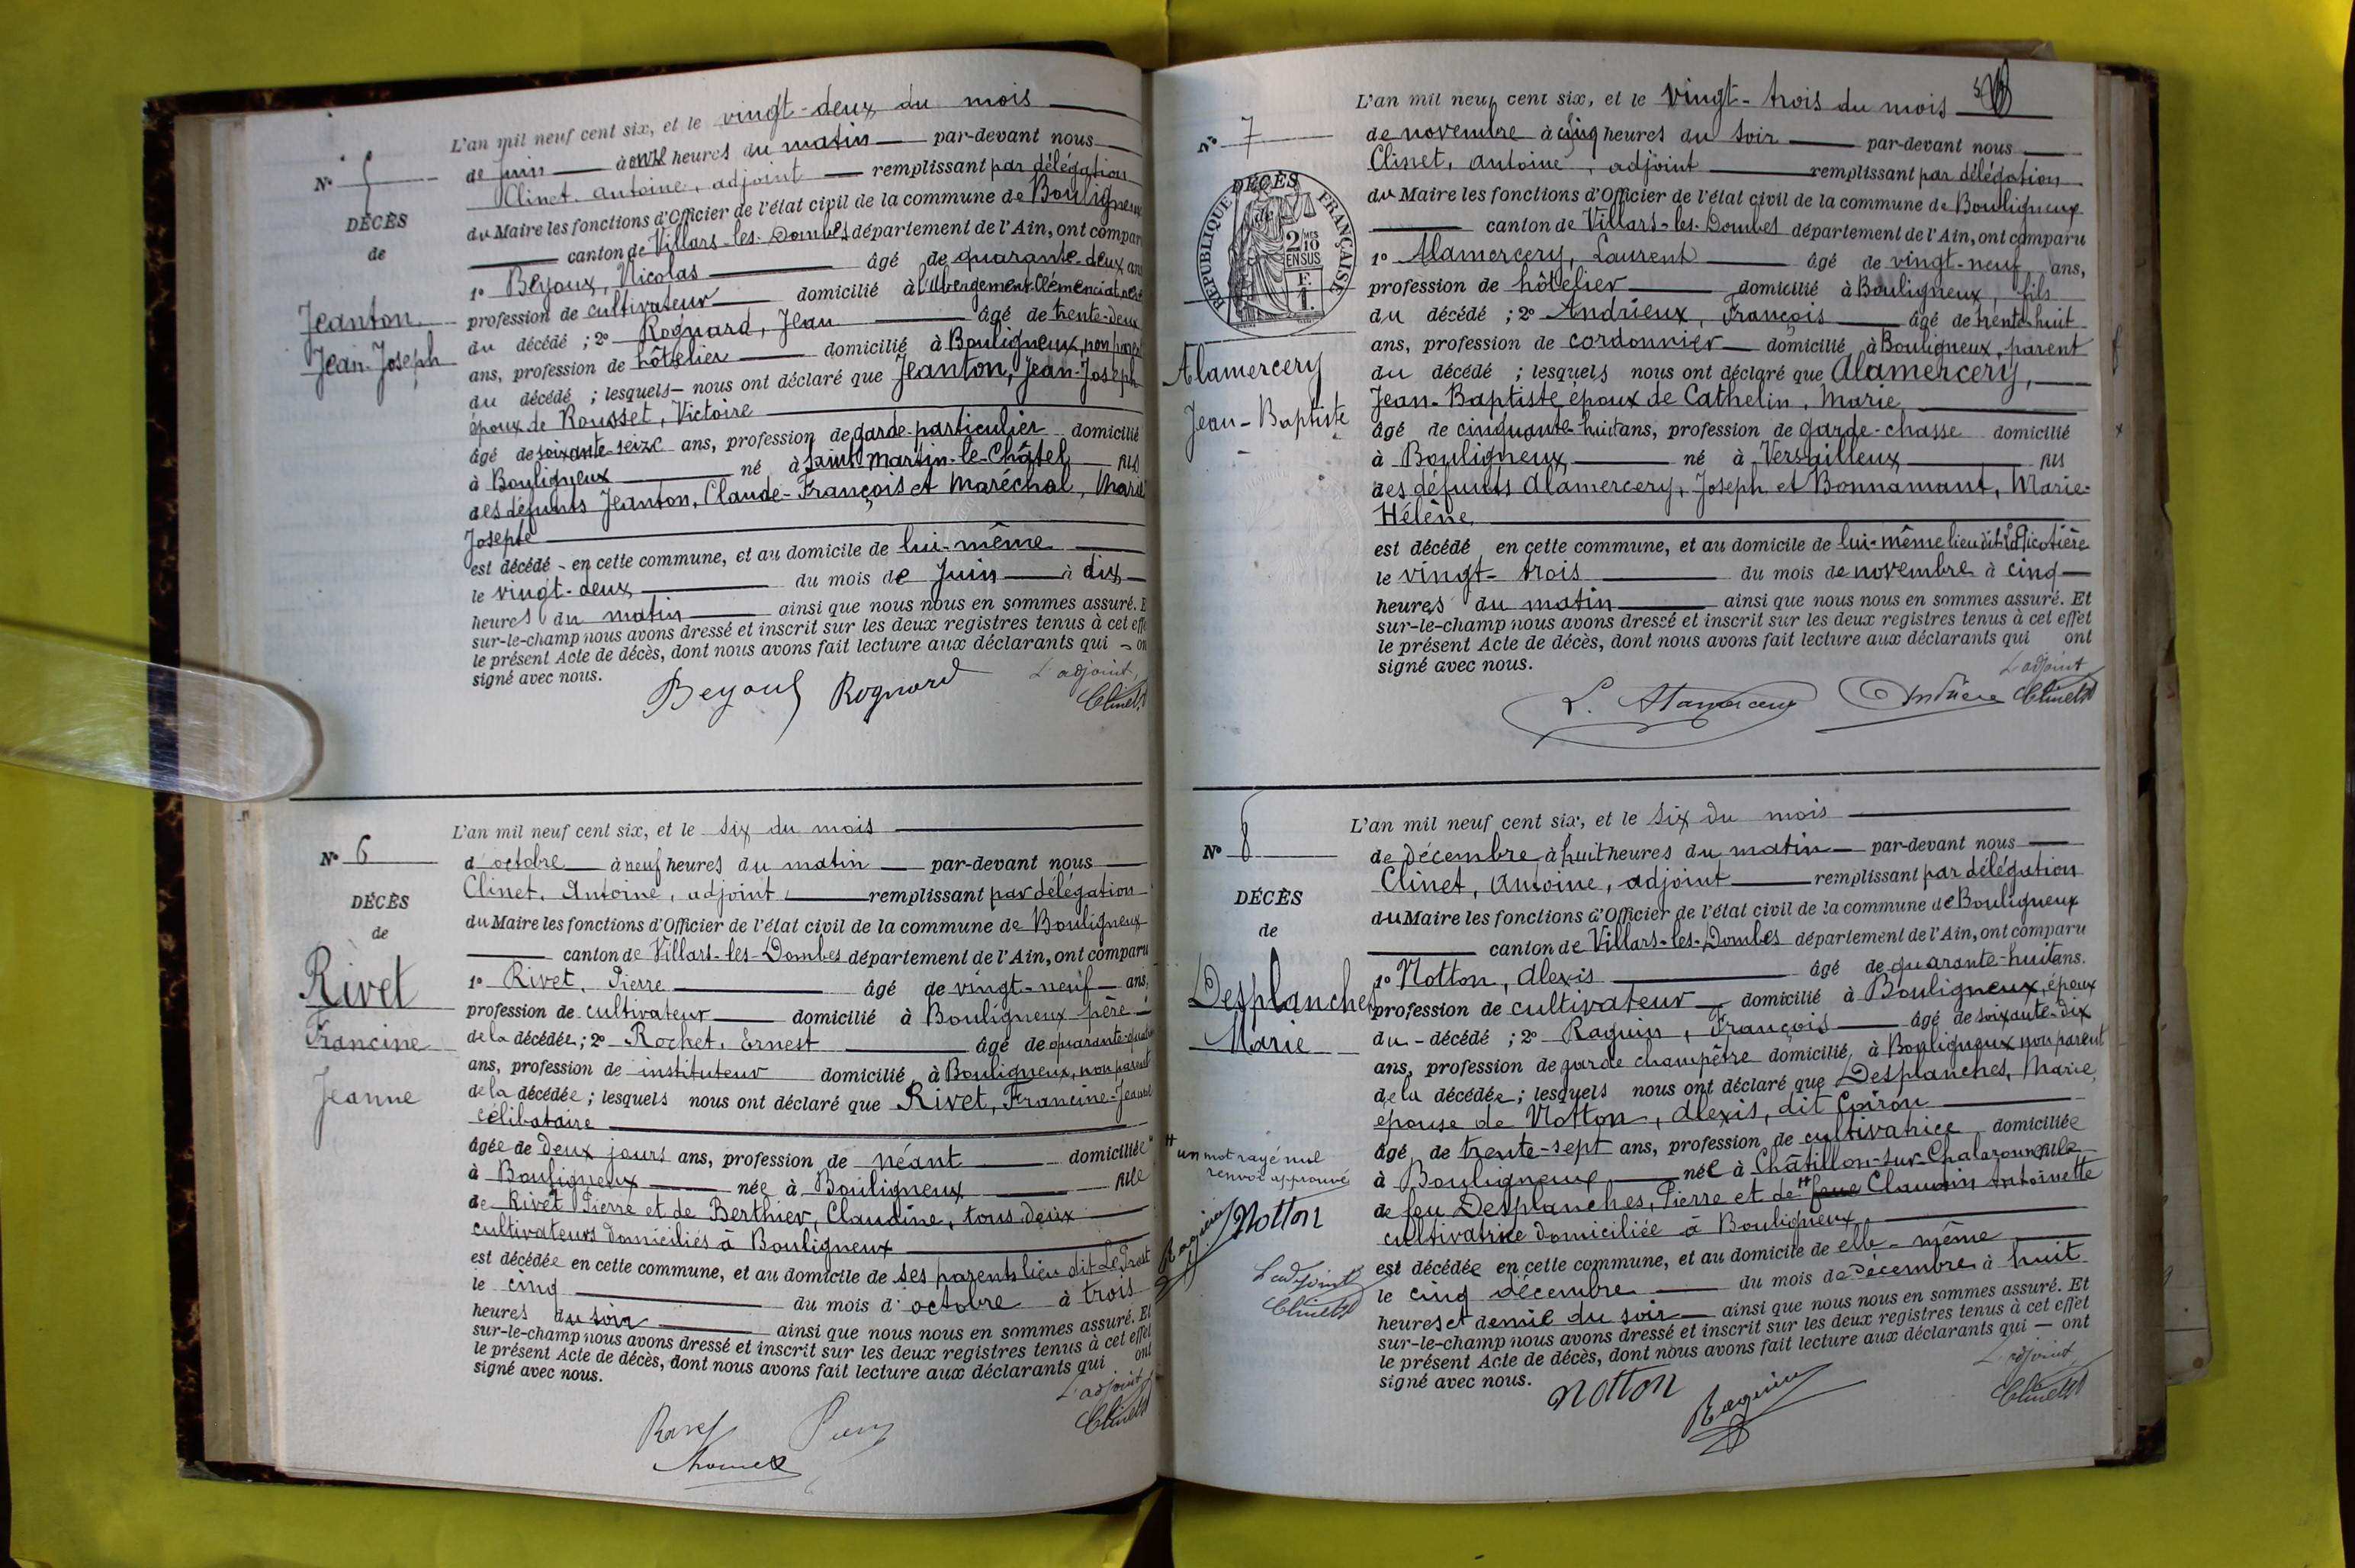 L'an mil neuf cent six, et le vingt-deux du mois
de Juin à onze heures du matin par-devant nous
Nº 5
Clinet, Antoine, adjoint remplissant par délégation
DÉCÈS
du Maire les fonctions d'Officier de l'état civil de la commune de Bouligneux
de
canton de Villars-les-Dombes département de l'Ain, ont compar
1º Beyoux, Nicolas âgé de quarante-deux ans
Jeanton
profession de cultivateur domicilié à l'Abergement-Clémenciat,
du décédé ; 2º Rognard, Jean âgé de trente-deux
Jean-Joseph
ans, profession de hôtelier domicilié à Bouligneux, non paren
du décédé ; lesquels nous ont déclaré que Jeanton, Jean-Joseph
époux de Rousset, Victoire
âgé de soixante-seize ans, profession de garde-particulier domicilié
à Bouligneux né à Saint Martin-le-Châtel fils
des défunts Jeanton, Claude-François et Maréchal, Marie
Josepte
est décédé - en cette commune, et au domicile de lui-même
le vingt-deux du mois de Juin à dix
heures du matin ainsi que nous nous en sommes assuré. E
sur-le-champ nous avons dressé et inscrit sur les deux registres tenus à cet effe
le présent Acte de décès, dont nous avons fait lecture aux déclarants qui - on
signé avec nous.
L'adjoint,
Beyoux Rognard Clinet
L'an mil neuf cent six, et le six du mois
Nº 6
d'octobre à neuf heures du matin par-devant nous
Clinet, Antoine, adjoint remplissant par délégation
DÉCÈS
du Maire les fonctions d'Officier de l'état civil de la commune de Bouligneux
de
canton de Villars-les-Dombes département de l'Ain, ont comparu
Rivet
1º Rivet, Pierre âgé de vingt-neuf ans,
profession de cultivateur domicilié à Bouligneux père
Francine
de la décédée ; 2º Rochet, Ernest âgé de quarante-quatre
ans, profession de instituteur domicilié à Bouligneux, non parent
Jeanne
de la décédée ; lesquels nous ont déclaré que Rivet, Francine-Jeanne
célibataire
âgée de deux jours ans, profession de néant domiciliée
à Bouligneux née à Bouligneux fille
de Rivet Pierre et de Berthier, Claudine, tous deux
cultivateurs domiciliés à Bouligneux
est décédée en cette commune, et au domicile de ses parents lieu dit
le cinq du mois d'octobre à trois
heures du soir ainsi que nous nous en sommes assuré. Et
sur-le-champ nous avons dressé et inscrit sur les deux registres tenus à cet effet
le présent Acte de décès, dont nous avons fait lecture aux déclarants qui ont
signé avec nous.
L'adjoint,
Clinet
L'an mil neuf cent six, et le vingt-trois du mois
Nº 7
de novembre à cinq heures du soir par-devant nous
Clinet, Antoine, adjoint remplissant par délégation
DÉCÈS
de
RÉPUBLIQUE FRANÇAISE
2/10 MES
EN SUS
1 F.
du Maire les fonctions d'Officier de l'état civil de la commune de Bouligneux
canton de Villars-les-Dombes département de l'Ain, ont comparu
1º Alamercery, Laurent âgé de vingt-neuf ans,
profession de hôtelier domicilié à Bouligneux, fils
du décédé ; 2º Andrieux, François âgé de trente-huit
ans, profession de cordonnier domicilié à Bouligneux, parent
Alamercery
du décédé ; lesquels nous ont déclaré que Alamercery,
Jean-Baptiste époux de Cathelin, Marie
Jean-Baptiste
âgé de cinquante-huit ans, profession de garde-chasse domicilié
à Bouligneux né à Versailleux fils
des défunts Alamercery, Joseph et Bonnamant, Marie-
Hélène,
est décédé en cette commune, et au domicile de lui-même lieu dit la Picotière
le vingt-trois du mois de novembre à cinq
heures du matin ainsi que nous nous en sommes assuré. Et
sur-le-champ nous avons dressé et inscrit sur les deux registres tenus à cet effet
le présent Acte de décès, dont nous avons fait lecture aux déclarants qui ont
signé avec nous.
L'adjoint
L. Alamercery Andrieux Clinet
L'an mil neuf cent six, et le six du mois
Nº 8
de décembre à huit heures du matin par-devant nous
Clinet, Antoine, adjoint remplissant par délégation
DÉCÈS
du Maire les fonctions d'Officier de l'état civil de la commune de Bouligneux
de
canton de Villars-les-Dombes département de l'Ain, ont comparu
1º Notton, Alexis âgé de quarante-huit ans.
Desplanches
profession de cultivateur domicilié à Bouligneux, époux
Marie
du - décédé ; 2º Raguin, François âgé de soixante-dix
ans, profession de garde champêtre domicilié à Bouligneux non parent
de la décédée ; lesquels nous ont déclaré que Desplanches, Marie,
épouse de Notton, Alexis, dit Coiron
âgé de trente-sept ans, profession de cultivatrice domiciliée
un mot rayé nul
renvoi approuvé
à Bouligneux née à Châtillon-sur-Chalaronne fille
de feu Desplanches, Pierre et de feue Claudin Antoinette
Raguin Notton
cultivatrice domiciliée à Bouligneux
est décédée en cette commune, et au domicile de elle-même
L'adjoint
Clinet
le cinq décembre du mois de Décembre à huit
heures et demie du soir ainsi que nous nous en sommes assuré. Et
sur-le-champ nous avons dressé et inscrit sur les deux registres tenus à cet effet
le présent Acte de décès, dont nous avons fait lecture aux déclarants qui — ont
signé avec nous.
L'adjoint,
Notton Raguin Clinet